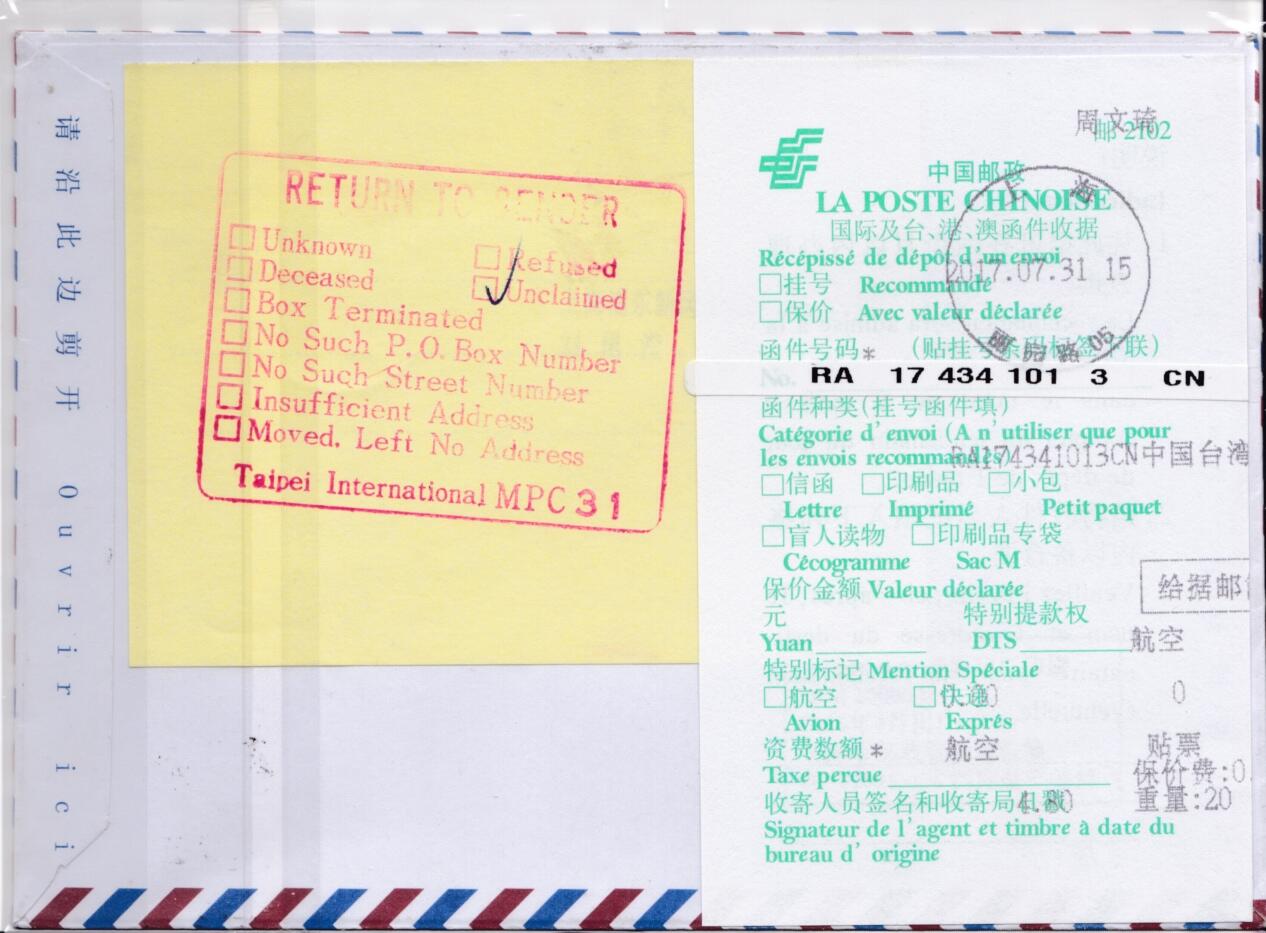 请沿此边剪开 Ouvrir ici
RETURN TO SENDER
Unknown
Refused
Deceased
Unclaimed
Box Terminated
No Such P.O. Box Number
No Such Street Number
Insufficient Address
Moved. Left No Address
Taipei International MPC 31
周文琦
邮 2102
中国邮政
LA POSTE CHINOISE
国际及台、港、澳函件收据
Récépissé de dépôt d'un envoi
上海
2017.07.31 15
□挂号 Recommandé
□保价 Avec valeur déclarée
函件号码* (贴挂号条码标签下联)
05
No.
RA 17 434 101 3 CN
函件种类(挂号函件填)
Catégorie d'envoi (A n'utiliser que pour
les envois recommandés)
RA174341013CN中国台湾
□信函 □印刷品 □小包
Lettre Imprimé Petit paquet
□盲人读物 □印刷品专袋
Cécogramme Sac M
给据邮
保价金额 Valeur déclarée
元 特别提款权
Yuan DTS
航空
特别标记 Mention Spéciale
□航空 □快递
0.00
0
Avion Exprés
资费数额* 航空 贴票
Taxe percue
保价费:0.
收寄人员签名和收寄局日戳
4.80
重量:20
Signateur de l'agent et timbre à date du
bureau d' origine